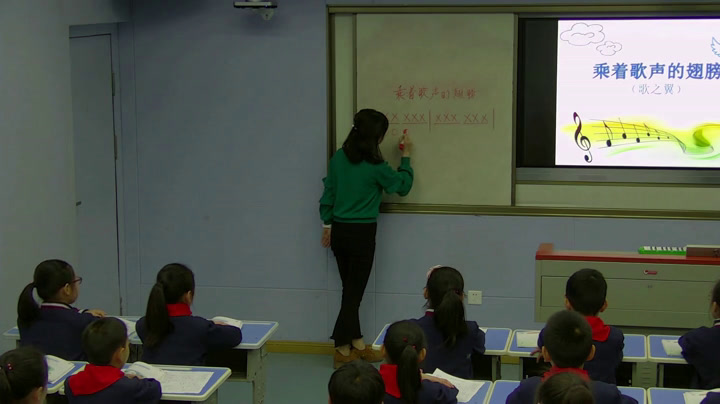 乘着歌声的翅膀
X XXX | XXX XXX |
乘着歌声的翅膀
（歌之翼）